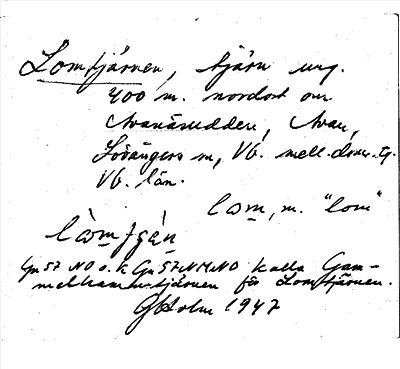 Lomtjärnen, tjärn ung.
400 m. nordost om
Avanäsudden, Avan,
Lövångers sn, Vb. mell. doms.
Vb. län.
lom, m. "lom"
Gn 57 NO o. k Gn 57 NMNO kalla Gam-
melhamnstjärnen för Lomtjärnen.
GHolm 1947